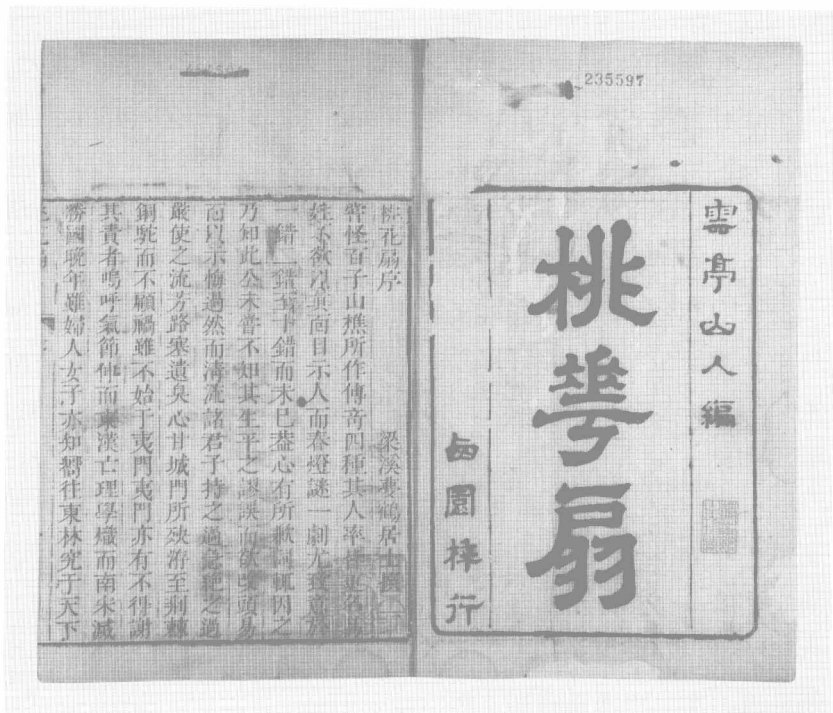 235597
雲亭山人編
桃華扇
西園梓行
桃花扇序 梁溪夢鶴居士撰
嘗怪百子山樵所作傳奇四種其人率皆更名易
姓不欲以真面目示人而春燈謎一劇尤致意於
一錯二錯至十錯而未已葢心有所歉詞輒因之
乃知此公未嘗不知其生平之謬誤而欲改頭易
面以示悔過然而清流諸君子持之過急絶之過
嚴使之流芳路塞遺臭心甘城門所殃洊至荆棘
銅駝而不顧禍雖不始于夷門夷門亦有不得謝
其責者嗚呼氣節伸而東漢亡理學熾而南宋滅
勝國晚年雖婦人女子亦知嚮往東林究于天下